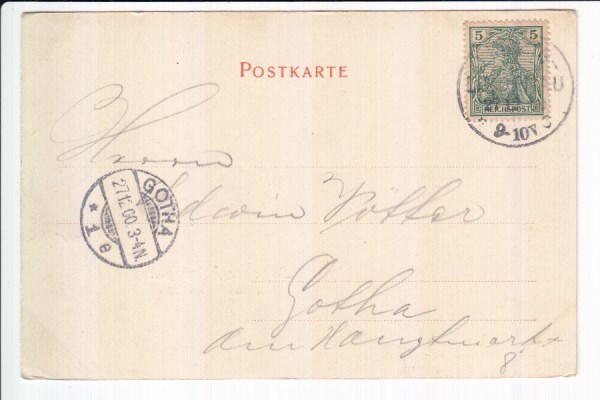 5 5
REICHSPOST
9-10V
POSTKARTE
Herrn
Edwin Vötter
GOTHA
27.12.00.3-4N.
* 1 e
Gotha
am Hauptmarkt
8